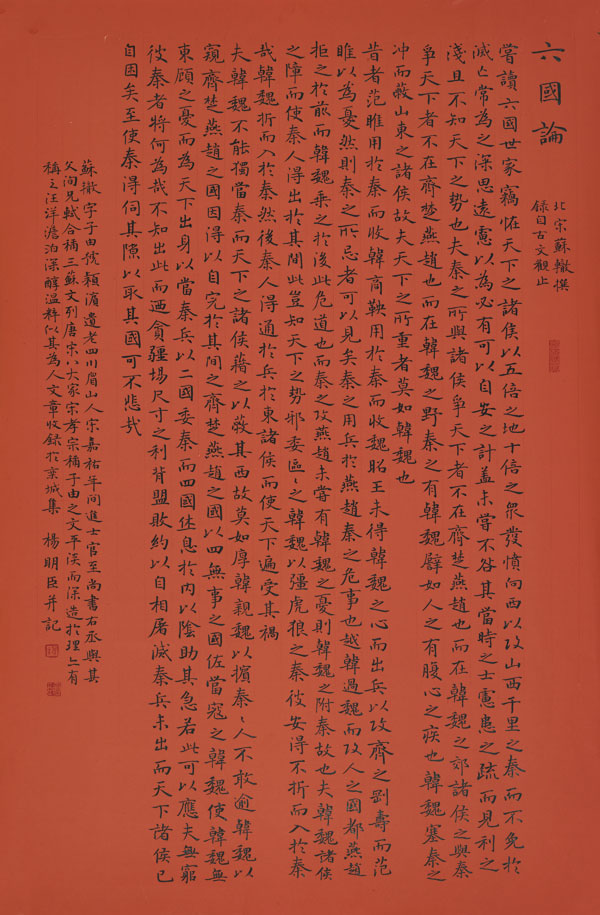 六國論
北宋蘇轍撰
錄自古文觀止
嘗讀六國世家竊怪天下之諸侯以五倍之地十倍之眾發憤向西以攻山西千里之秦而不免於
滅亡常為之深思遠慮以為必有可以自安之計蓋未嘗不咎其當時之士慮患之疏而見利之
淺且不知天下之勢也夫秦之所與諸侯爭天下者不在齊楚燕趙也而在韓魏之郊諸侯之與秦
爭天下者不在齊楚燕趙也而在韓魏之野秦之有韓魏譬如人之有腹心之疾也韓魏塞秦之
冲而蔽山東之諸侯故夫天下之所重者莫如韓魏也
昔者范雎用於秦而收韓商鞅用於秦而收魏昭王未得韓魏之心而出兵以攻齊之剛壽而范
雎以為憂然則秦之所忌者可以見矣秦之用兵於燕趙秦之危事也越韓過魏而攻人之國都燕趙
拒之於前而韓魏乘之於後此危道也而秦之攻燕趙未嘗有韓魏之憂則韓魏之附秦故也夫韓魏諸侯
之障而使秦人得出於其間此豈知天下之勢邪委區〻之韓魏以彊虎狼之秦彼安得不折而入於秦
哉韓魏折而入於秦然後秦人得通於兵於東諸侯而使天下遍受其禍
夫韓魏不能獨當秦而天下之諸侯藉之以蔽其西故莫如厚韓親魏以擯秦〻人不敢逾韓魏以
窺齊楚燕趙之國因得以自完於其間之齊楚燕趙之國以四無事之國佐當寇之韓魏使韓魏無
東顧之憂而為天下出身以當秦兵以二國委秦而四國休息於內以陰助其急若此可以應夫無窮
彼秦者將何為哉不知出此而迺貪疆埸尺寸之利背盟敗約以自相屠滅秦兵未出而天下諸侯已
自困矣至使秦得伺其隙以取其國可不悲哉
蘇轍字子由候潁濱遺老四川眉山人宋嘉祐年間進士官至尚書右丞與其
父洵兄軾合稱三蘇文列唐宋八大家宋孝宗稱子由之文平淡而深造於理亦有
稱之汪洋澹泊深醇溫粹似其為人文章收錄於欒城集 楊明臣并記